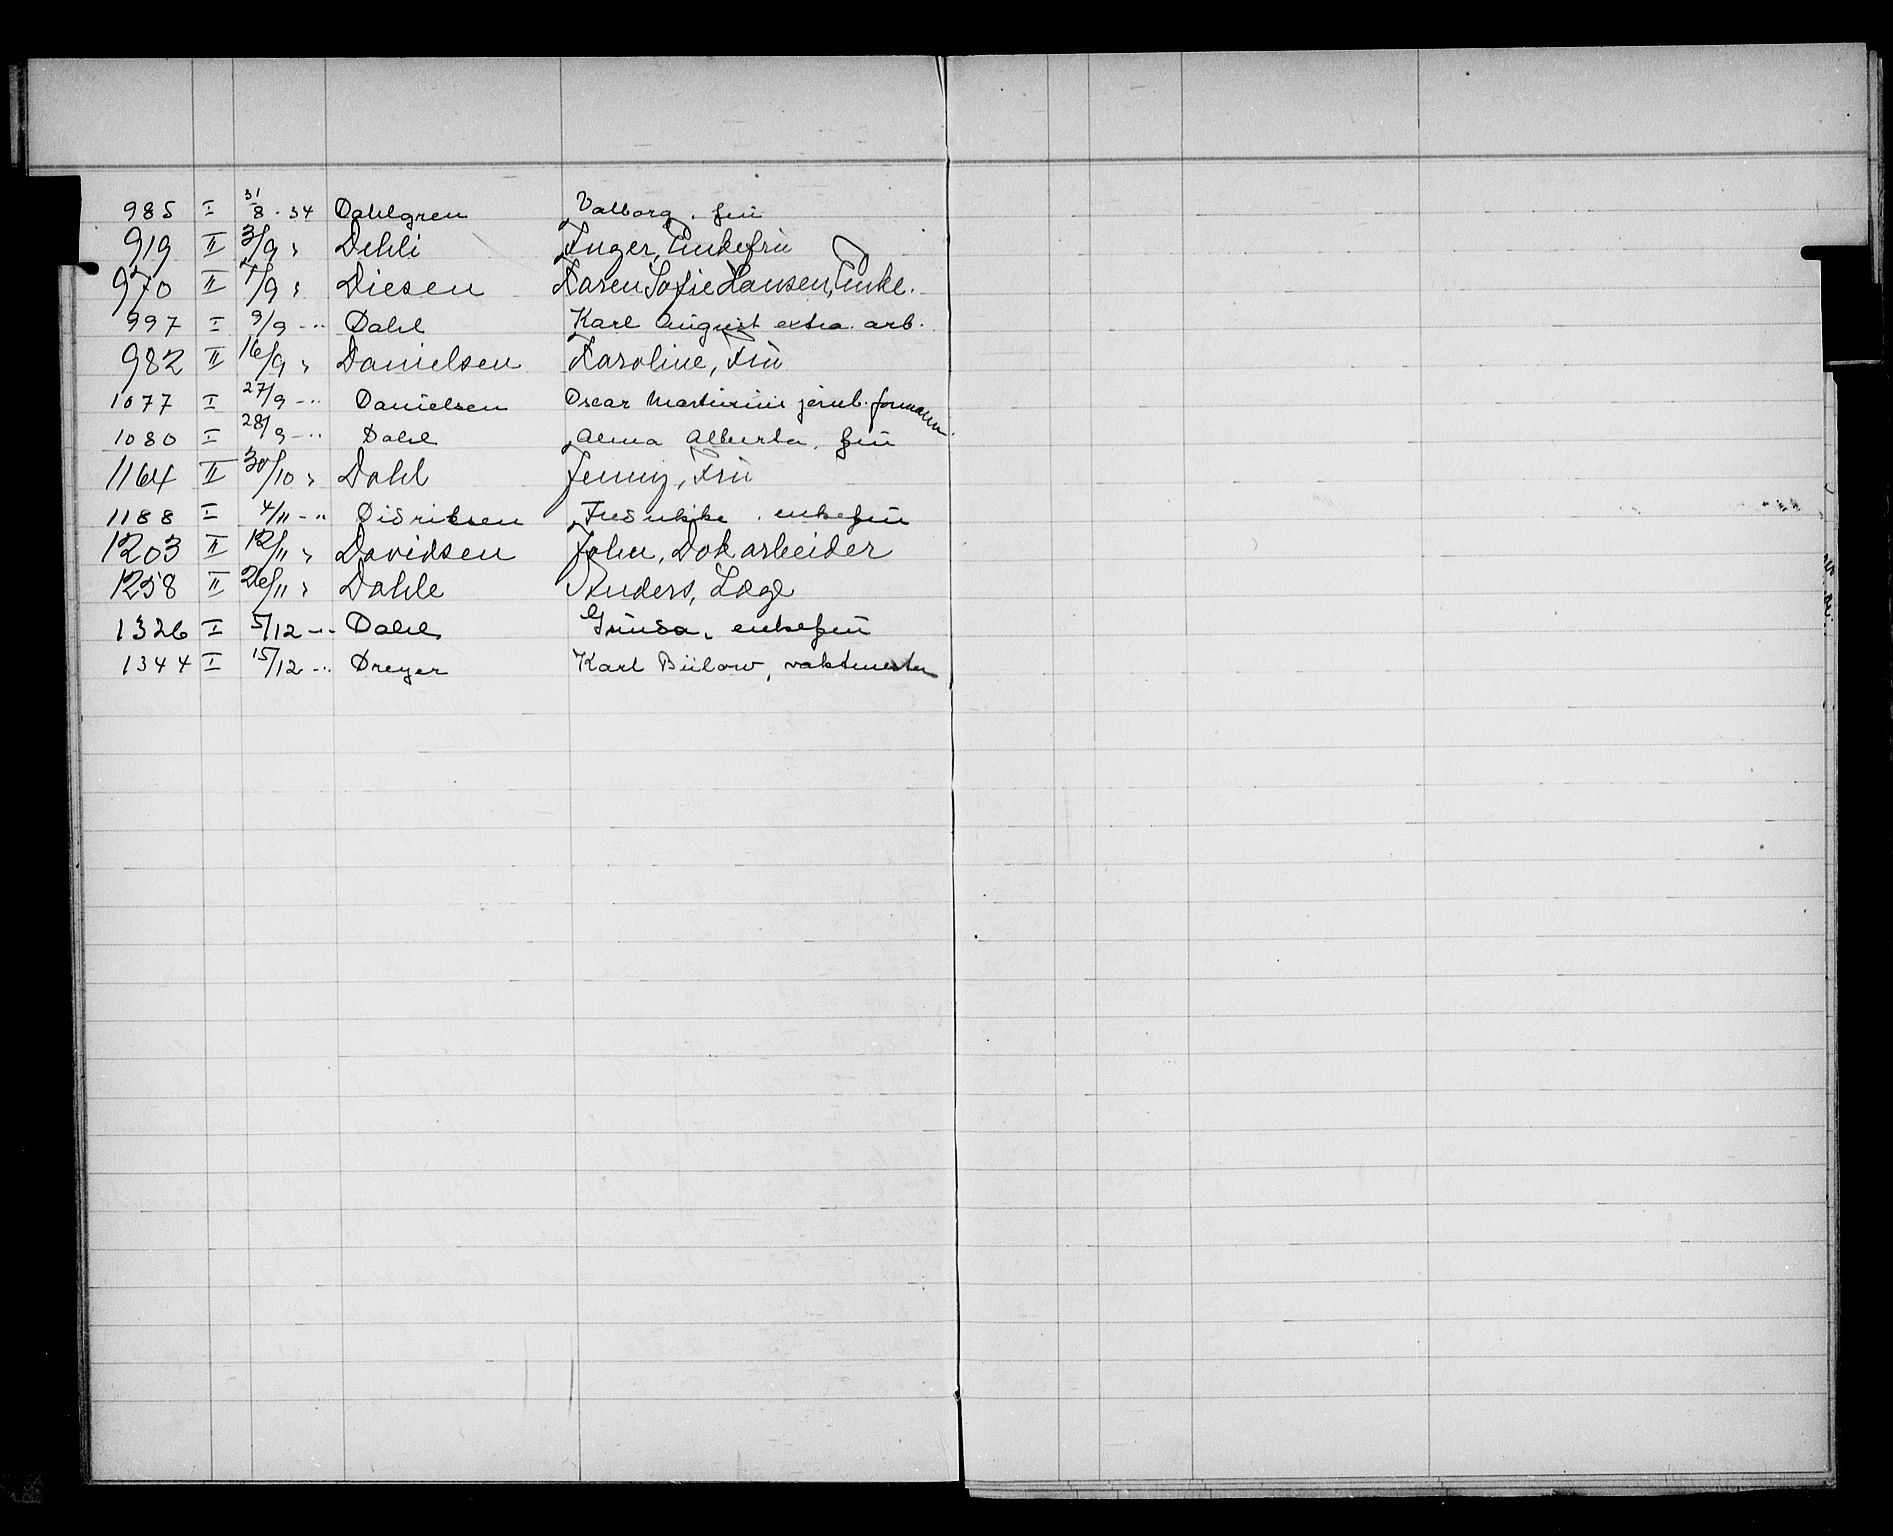 985 I 31/8 - 34 Dahlgren Valborg. frü
919 II 3/9 " Dehli Inger, Enkefrü
970 II 7/9 " Diesen Karen Sofie Hansen, Enke.
997 I 9/9 - " Dahl Karl August extra. arb.
982 II 16/9 " Danielsen Karoline, Frü
1077 I 27/9 - " Danielsen Oscar Martinius jernb. formann.
1080 I 28/9 - " Dahl Alma Alberta, frü
1164 II 30/10 " Dahl Jenny, Frü
1188 I 4/11 - " Didriksen Fredrikke. enkefrü
1203 II 12/11 " Davidsen John, Dokarbeider
1258 II 26/11 " Dahle Anders, Læge
1326 I 5/12 - " Dahl Grinda, enkefrü
1344 I 15/12 - " Dreyer Karl Bülow, vaktmester